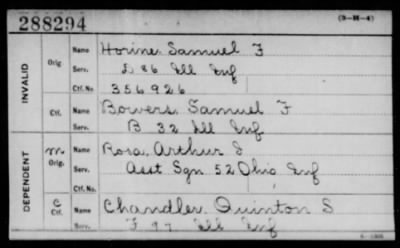 288294
(3-M-4)
INVALID
Orig
Name Horine, Samuel F
Serv. D 86 Ill Inf
Ctf. No. 356926
Ctf.
Name Bowers, Samuel F
Serv. B 32 Ill Inf
DEPENDENT
m
Orig.
Name Rosa, Arthur S
Serv. Asst Sgn 52 Ohio Inf
Ctf. No.
C
Ctf.
Name Chandler, Quinton S
Serv. F 97 Ill Inf